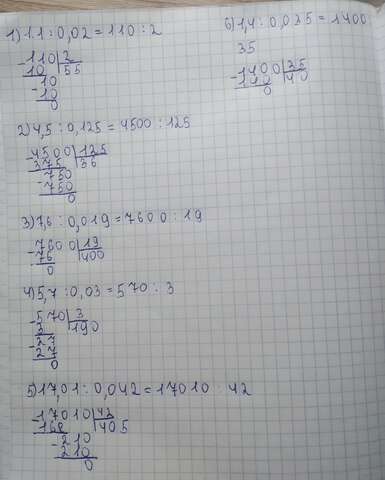 1) 1.1 : 0,02 = 110 : 2
-110 | 2
10 | 55
-10
10
0
2) 4,5 : 0,125 = 4500 : 125
-4500 | 125
375 | 36
-750
750
0
3) 7,6 : 0,019 = 7600 : 19
-7600 | 19
76 | 400
0
4) 5,7 : 0,03 = 570 : 3
-570 | 3
3 | 190
-27
27
0
5) 17,01 : 0,042 = 17010 : 42
-17010 | 42
168 | 405
-210
210
0
6) 1,4 : 0,035 = 1400
35
-1400 | 35
140 | 40
0